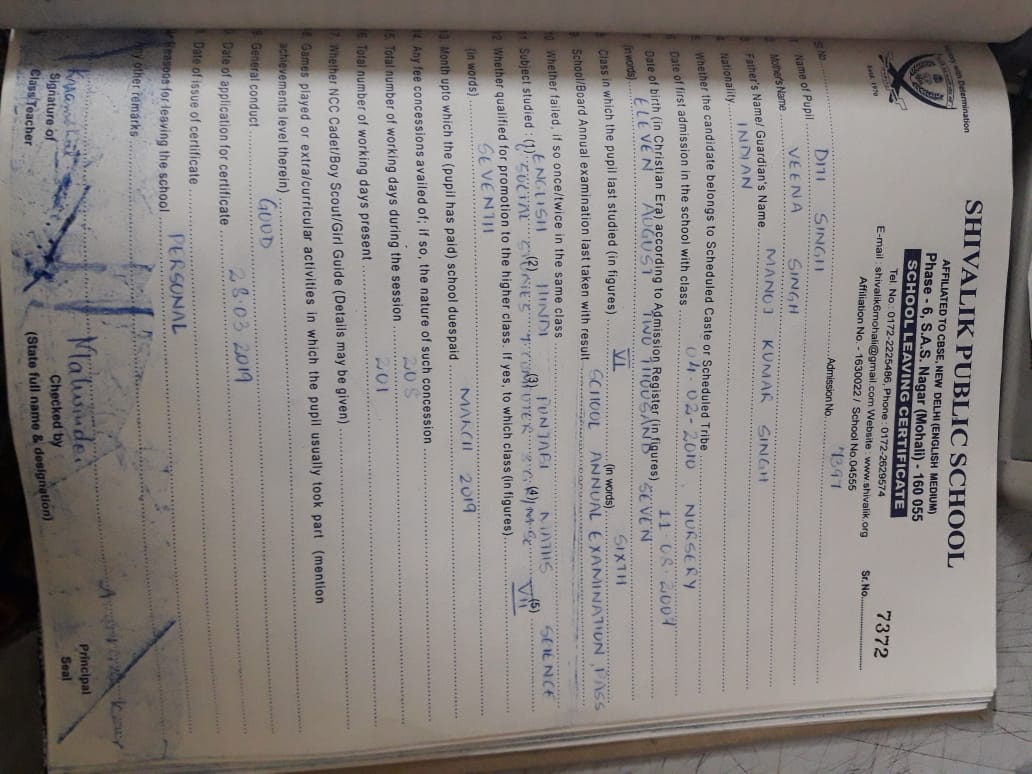 with Determination
Estd. 1970
SHIVALIK PUBLIC SCHOOL
AFFILIATED TO CBSE, NEW DELHI (ENGLISH MEDIUM)
Phase - 6, S.A.S. Nagar (Mohali) - 160 055
SCHOOL LEAVING CERTIFICATE
Tel. No. 0172-2225486, Phone : 0172-2629574
E-mail : shivalik6mohali@gmail.com Website : www.shivalik.org
Affiliation No. - 1630022 / School No.04555
Sr.No. 7372
Sl No. Admission No.
1 Name of Pupil DITI SINGH
2 Mother's Name VEENA SINGH
3 Father's Name/ Guardian's Name MANOJ KUMAR SINGH
4 Nationality INDIAN
5 Whether the candidate belongs to Scheduled Caste or Scheduled Tribe
6 Date of first admission in the school with class 04-02-2010, NURSERY
7 Date of birth (in Christian Era) according to Admission Register (in figures) 11.08.2007
(in words) ELEVEN AUGUST TWO THOUSAND SEVEN
8 Class in which the pupil last studied (in figures) VI (in words) SIXTH
9 School/Board Annual examination last taken with result SCHOOL ANNUAL EXAMINATION, PASS
10 Whether failed, if so once/twice in the same class
11 Subject studied : (1) ENGLISH (2) HINDI (3) PUNJABI (4) MATHS (5) SCIENCE
SOCIAL STUDIES COMPUTER
12 Whether qualified for promotion to the higher class. If yes, to which class (in figures) VII
(In words) SEVENTH
13 Month upto which the (pupil has paid) school dues paid MARCH 2019
14. Any fee concessions availed of; if so, the nature of such concession
15. Total number of working days during the session 208
16. Total number of working days present 201
17. Whether NCC Cadet/Boy Scout/Girl Guide (Details may be given)
18. Games played or extra/curricular activities in which the pupil usually took part (mention
achievements level therein)
General conduct GOOD
Date of application for certificate 28.03 2019
Date of issue of certificate
Reasons for leaving the school PERSONAL
Any other remarks
Signature of
Class Teacher
Checked by
(State full name & designation)
Principal
Seal